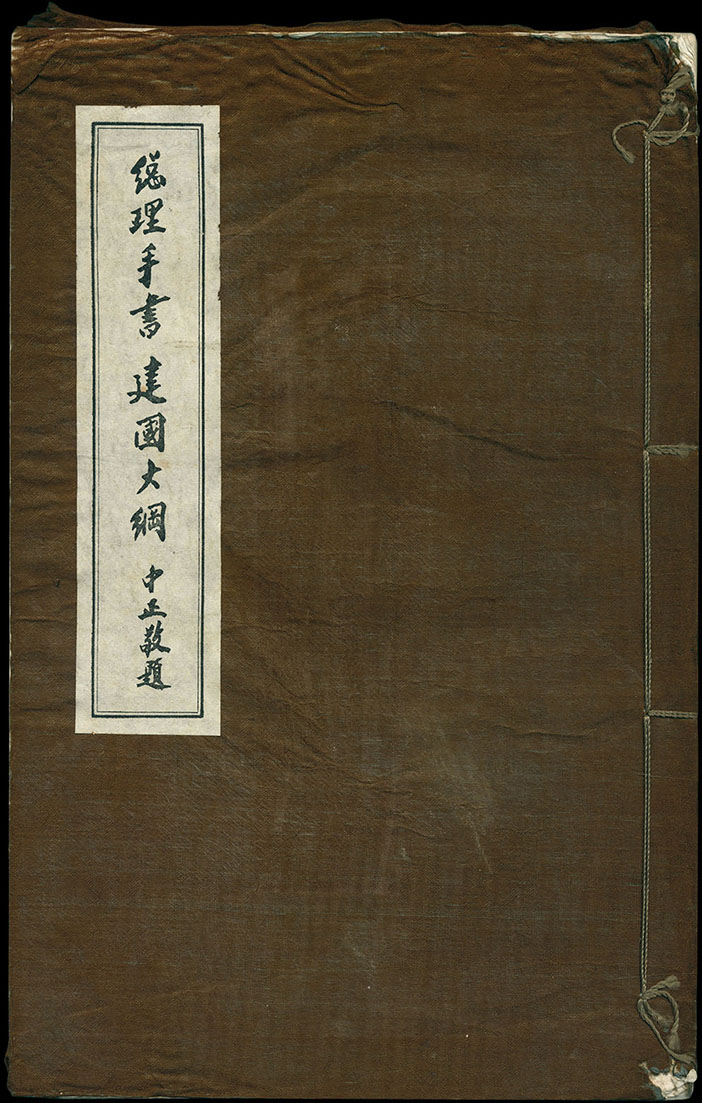 總理手書建國大綱 中正敬題